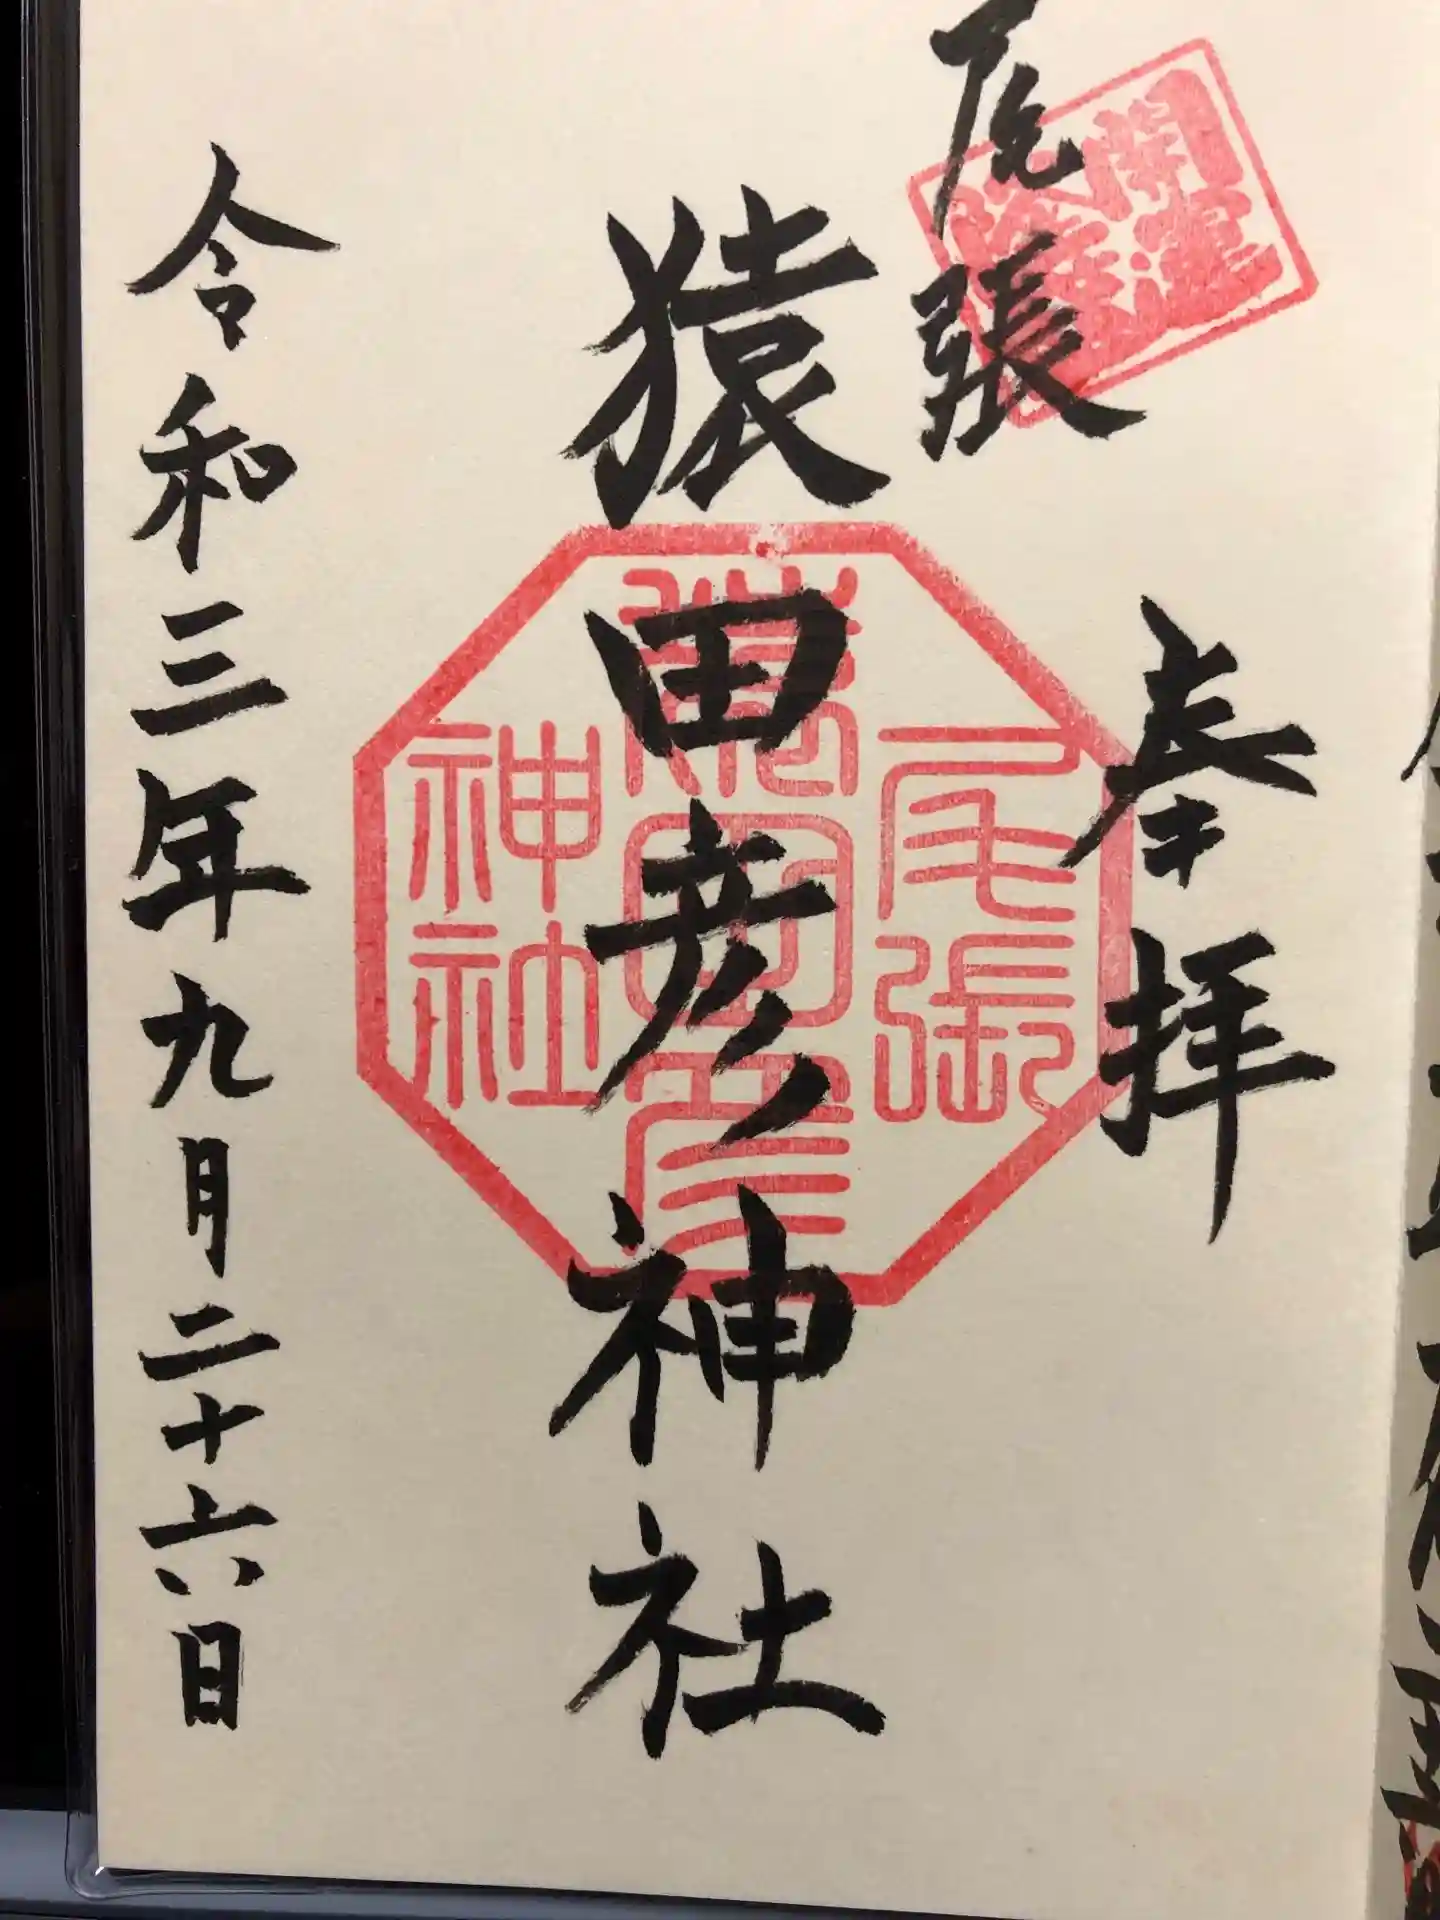 尾張
奉拝
猿田彦神社
令和三年九月二十六日
尾張
猿田彦
神社